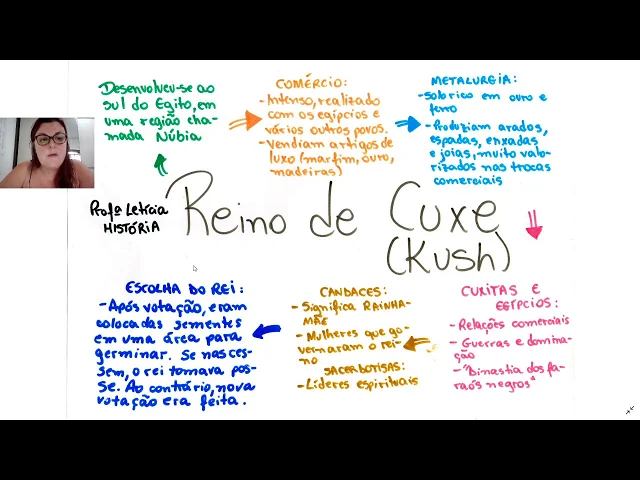 Desenvolveu-se ao
sul do Egito, em
uma região cha-
mada Núbia
COMÉRCIO:
- Intenso, realizado
com os egípcios e
vários outros povos.
- Vendiam artigos de
luxo (marfim, ouro,
madeiras)
METALURGIA:
- Solo rico em ouro e
ferro
- Produziam arados,
espadas, enxadas
e joias, muito valo-
rizados nas trocas
comerciais
Profª Letícia
HISTÓRIA
Reino de Cuxe
(Kush)
ESCOLHA DO REI:
- Após votação, eram
colocadas sementes
em uma área para
germinar. Se nasces-
sem, o rei tomava pos-
se. Ao contrário, nova
votação era feita.
CANDACES:
- Significa RAINHA-
MÃE
- Mulheres que go-
vernaram o rei-
no
SACERDOTISAS:
- Líderes espirituais
CUXITAS E
EGÍPCIOS:
- Relações comerciais
- Guerras e domina-
ção
- "Dinastia dos fa-
raós negros"